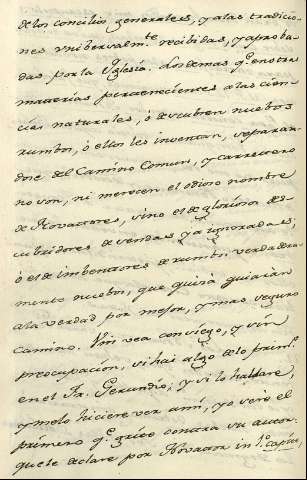 de los concilios generales, y a las tradicio-
nes vnibersalm.te recibidas, y aproba-
das por la Yglesia. Los demas q.e en otras
materias pertenecientes a las cien-
cias naturales, ó descubren nuebos
rumbos, ó ellos les inventan, separan-
dose del Camino Comun, y carretero
no son, ni merecen el odioso nombre
de Novatores, sino el de gloriosos des-
cubridores de sendas ya ignoradas,
ó el de imbentores de rumbos verdadera-
mente nuebos, que quizá guiarán
a la verdad por mejor, y mas seguro
Camino. Vm vea con sosiego, y sin
preocupación, si hai algo de lo prim.o
en el Fr. Gerundio, y si lo hallare,
y melo hiciere ver ami, yo seré el
primero q.e grite contra su autor
que se declare por Novator in 1.o capite,